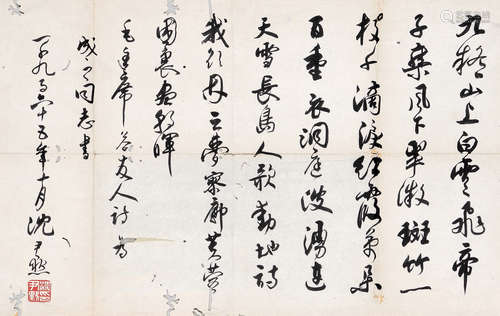 九嶷山上白雲飛帝
子乘風下翠微斑竹一
枝千滴淚紅霞萬朵
百重衣洞庭波湧連
天雪長島人歌動地詩
我欲因之夢寥廓芙蓉
國裏盡朝暉
毛主席答友人詩為
成之同志書
一九百六十五年十月沈尹默